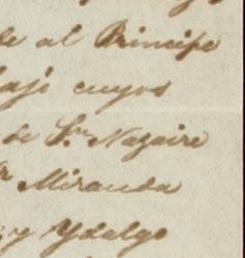 de al Principe
bajo cuyos
de Sn. Nazaire
Miranda
y Ydalgo